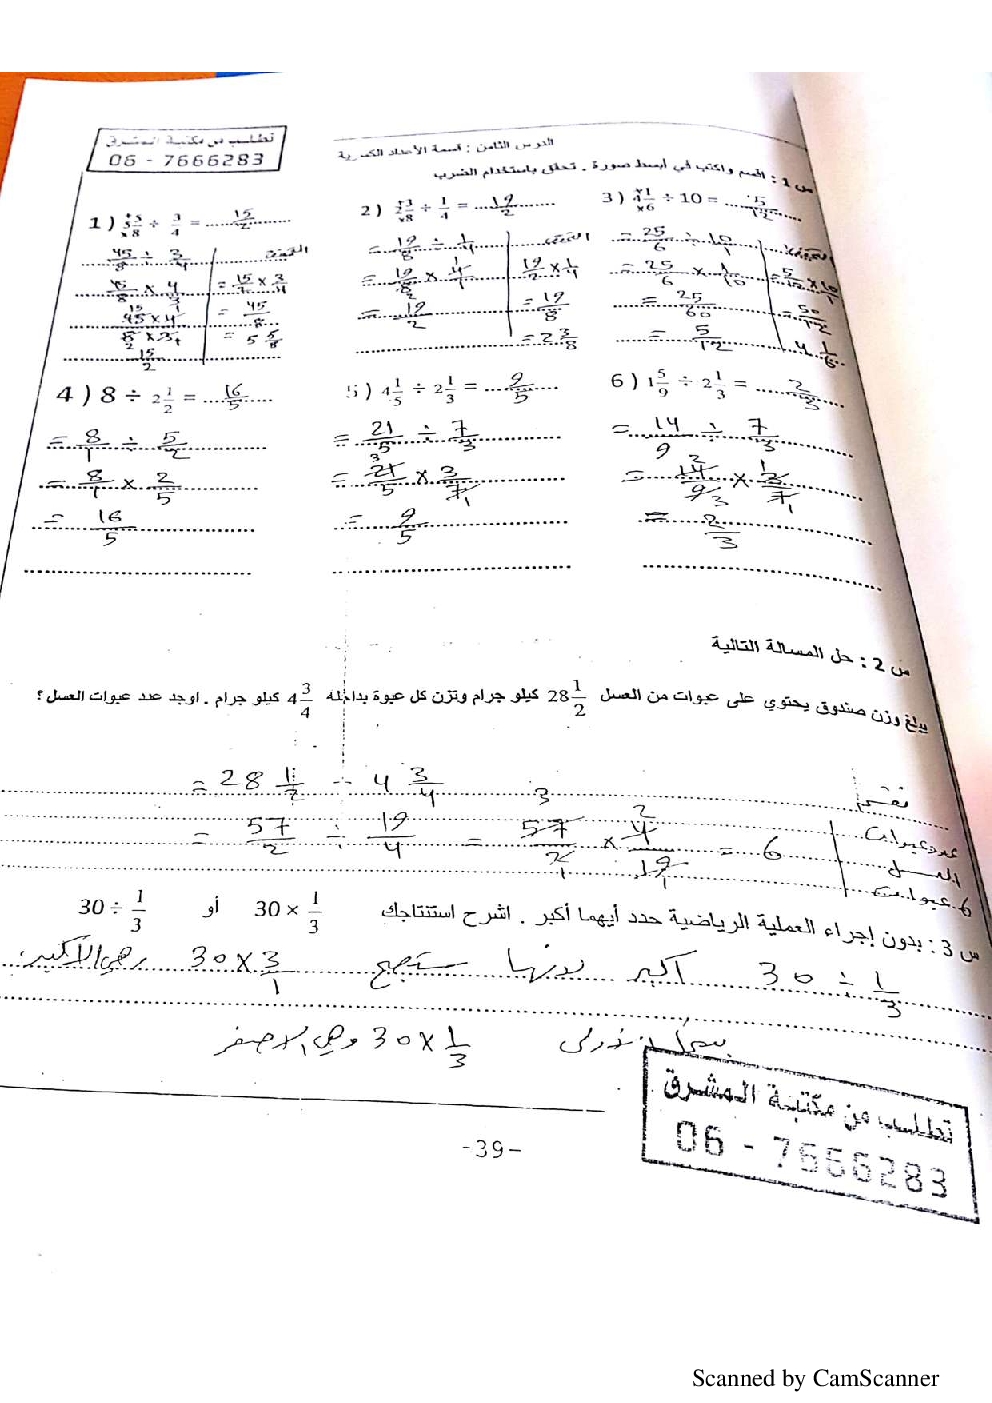 تطلب من مكتبة المشرق
06 - 7666283
الدرس الثامن : قسمة الأعداد الكسرية
س 1 : اقسم واكتب في أبسط صورة . تحقق باستخدام الضرب
1 ) 5 5/8 ÷ 3/4 = 15/2
45/8 ÷ 3/4
45/8 × 4/3
45×4 / 8×3
15/2
التحقق
= 15/2 × 3/4
= 45/8
= 5 5/8
2 ) 2 3/8 ÷ 1/4 = 19/2
= 19/8 ÷ 1/4
= 19/8 × 4/1
= 19/2
التحقق
19/2 × 1/4
= 19/8
= 2 3/8
3 ) 4 1/6 ÷ 10 = 5/12
= 25/6 ÷ 10/1
= 25/6 × 1/10
= 25/60
= 5/12
التحقق
= 5/12 × 10/1
= 50/12
4 1/6
4 ) 8 ÷ 2 1/2 = 16/5
= 8/1 ÷ 5/2
= 8/1 × 2/5
= 16/5
5 ) 4 1/5 ÷ 2 1/3 = 9/5
= 21/5 ÷ 7/3
= 21/5 × 3/7
= 9/5
6 ) 1 5/9 ÷ 2 1/3 = 2/3
= 14/9 ÷ 7/3
= 14/9 × 3/7
= 2/3
س 2 : حل المسالة التالية
يبلغ وزن صندوق يحتوي على عبوات من العسل 28 1/2 كيلو جرام وتزن كل عبوة بداخله 4 3/4 كيلو جرام . اوجد عدد عبوات العسل ؟
نقسم
= 28 1/2 ÷ 4 3/4
= 57/2 ÷ 19/4 = 57/2 × 4/19 = 6
عدد عبوات
العسل
6 عبوات
س 3 : بدون إجراء العملية الرياضية حدد أيهما أكبر . اشرح استنتاجك 30 × 1/3 أو 30 ÷ 1/3
30 ÷ 1/3 أكبر لانها ستصبح 30 × 3/1 وهي الأكبر
30 × 1/3 وهي الاصغر
تطلب من مكتبة المشرق
06 - 7666283
-39-
Scanned by CamScanner